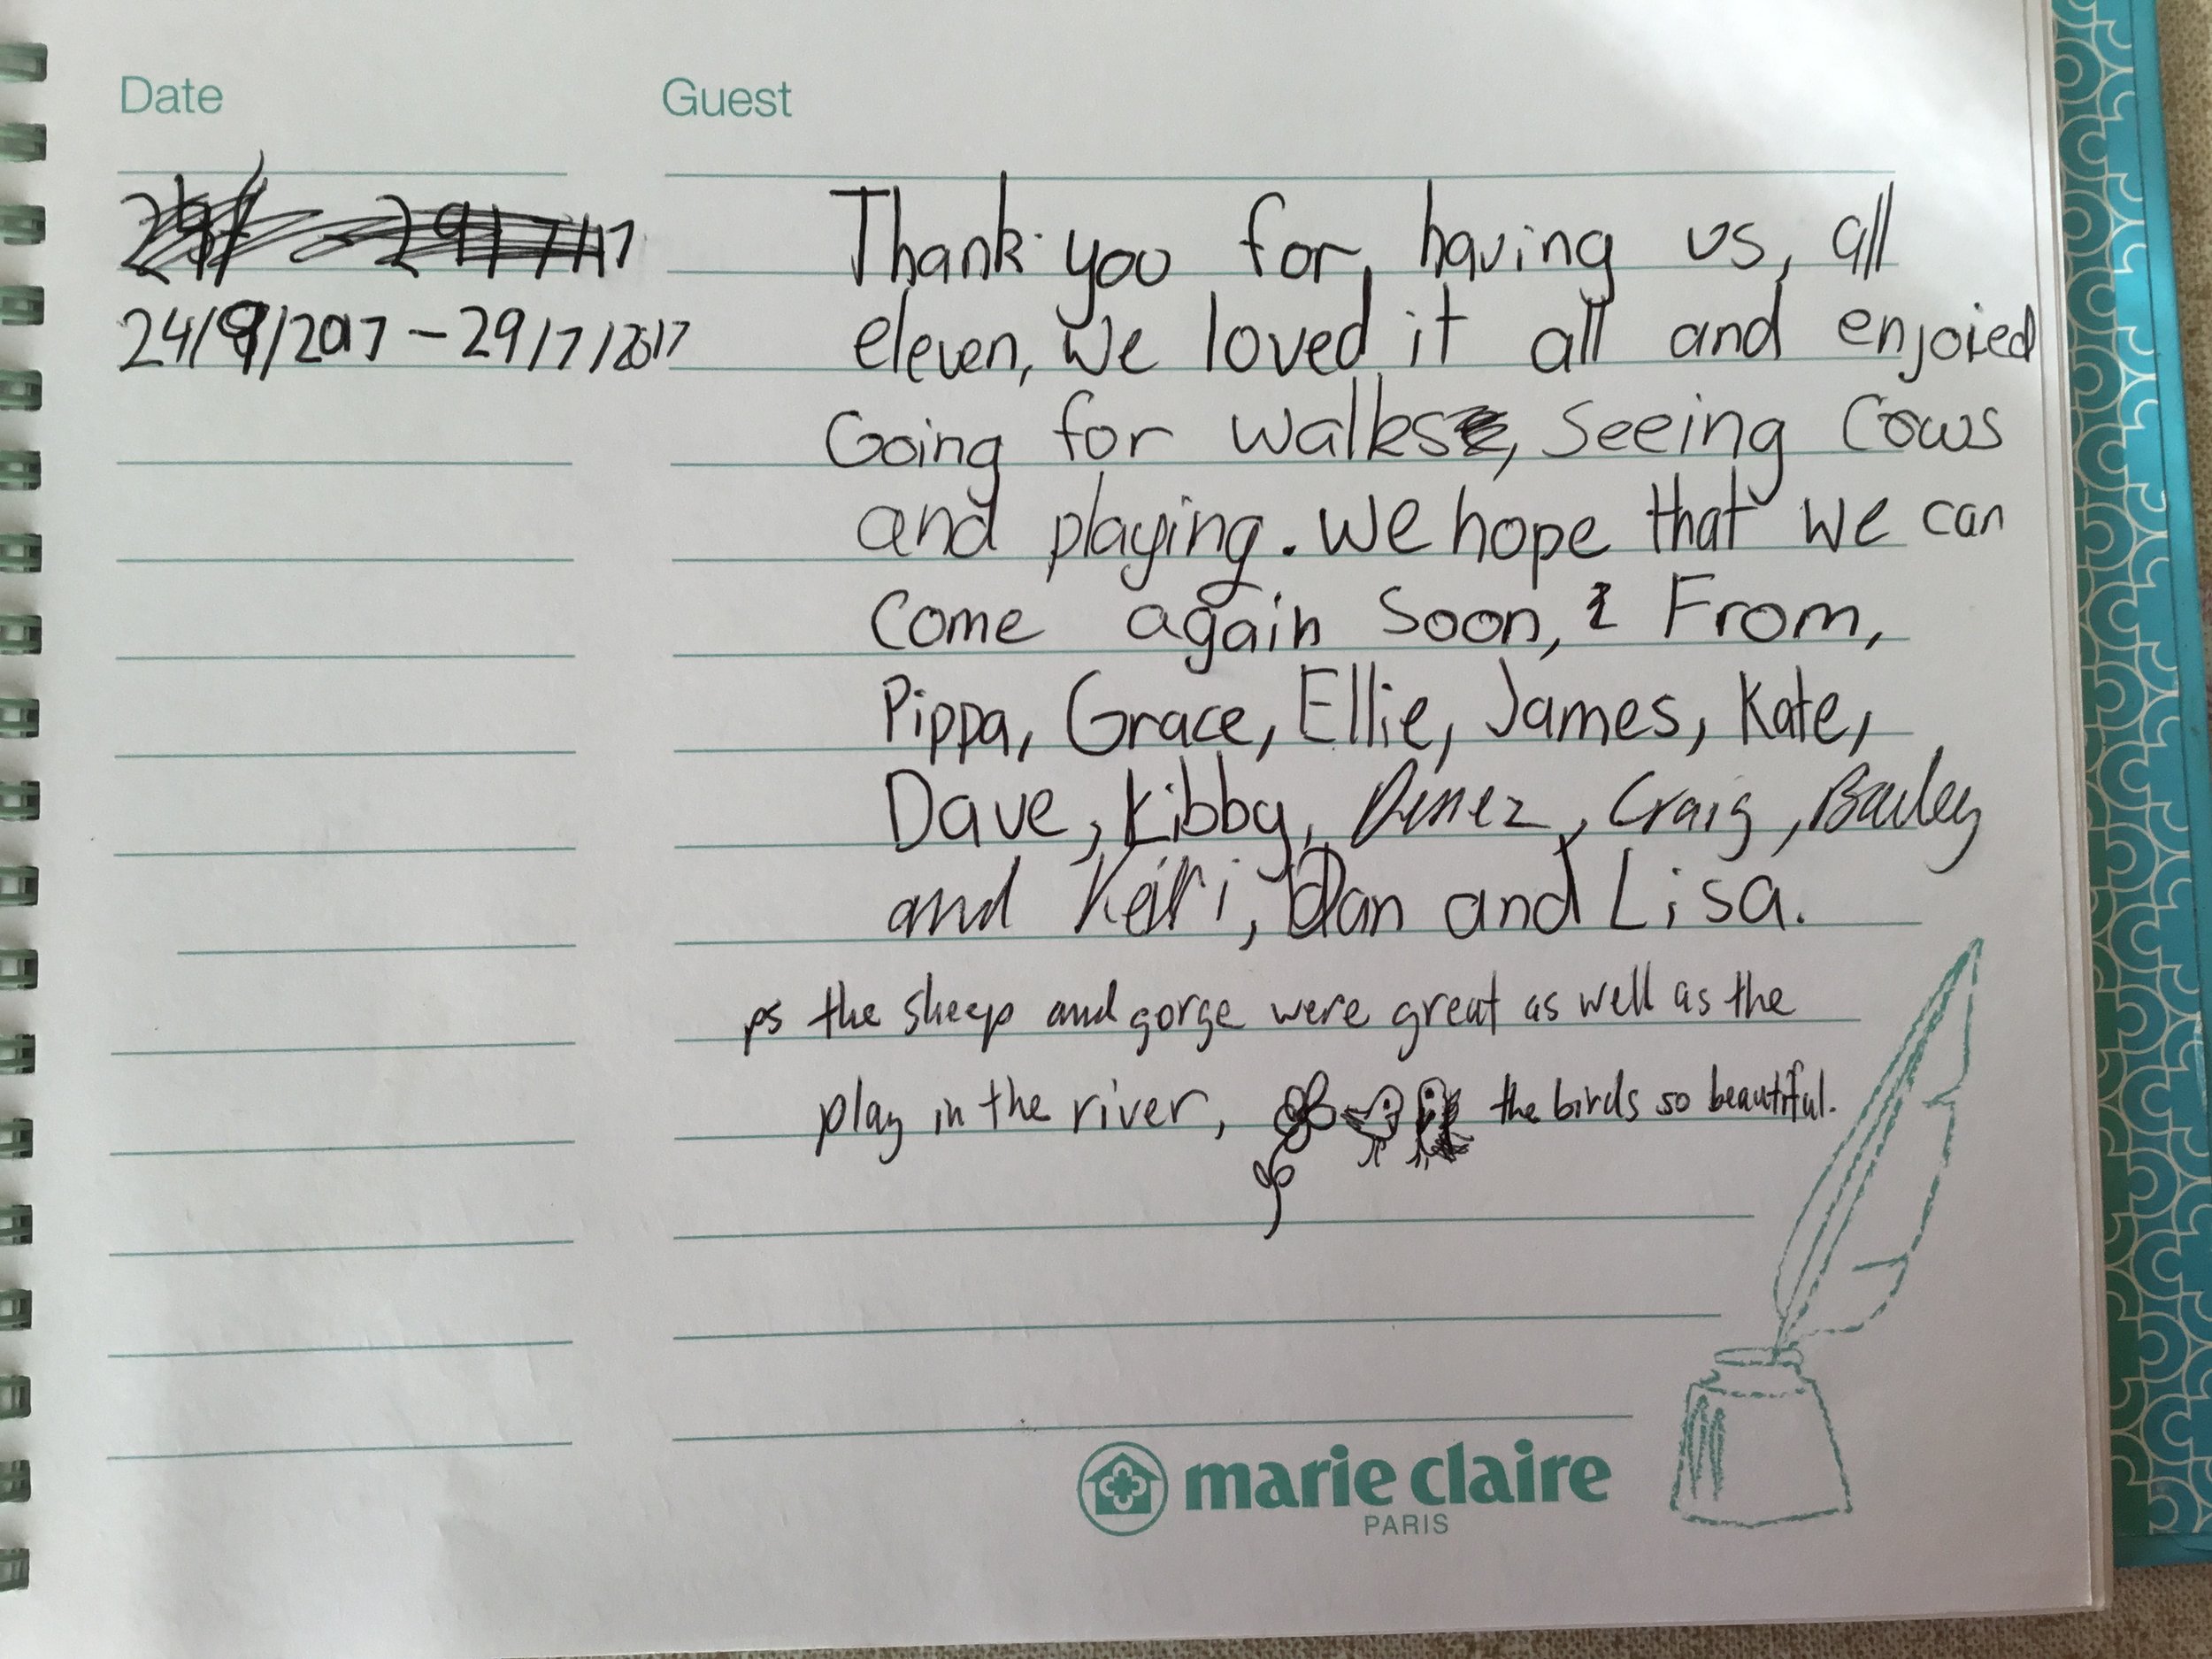 Date Guest
29/7/17 Thank you for, having us, all
24/9/2017 – 29/7/2017 eleven, We loved it all and enjoied
Going for walks, Seeing Cows
and playing. We hope that we can
Come again Soon, From,
Pippa, Grace, Ellie, James, Kate,
Dave, Kibby, Craig, Bailey
and Dan and Lisa.
ps the sheep and gorge were great as well as the
play in the river, the birds so beautiful.
marie claire
PARIS